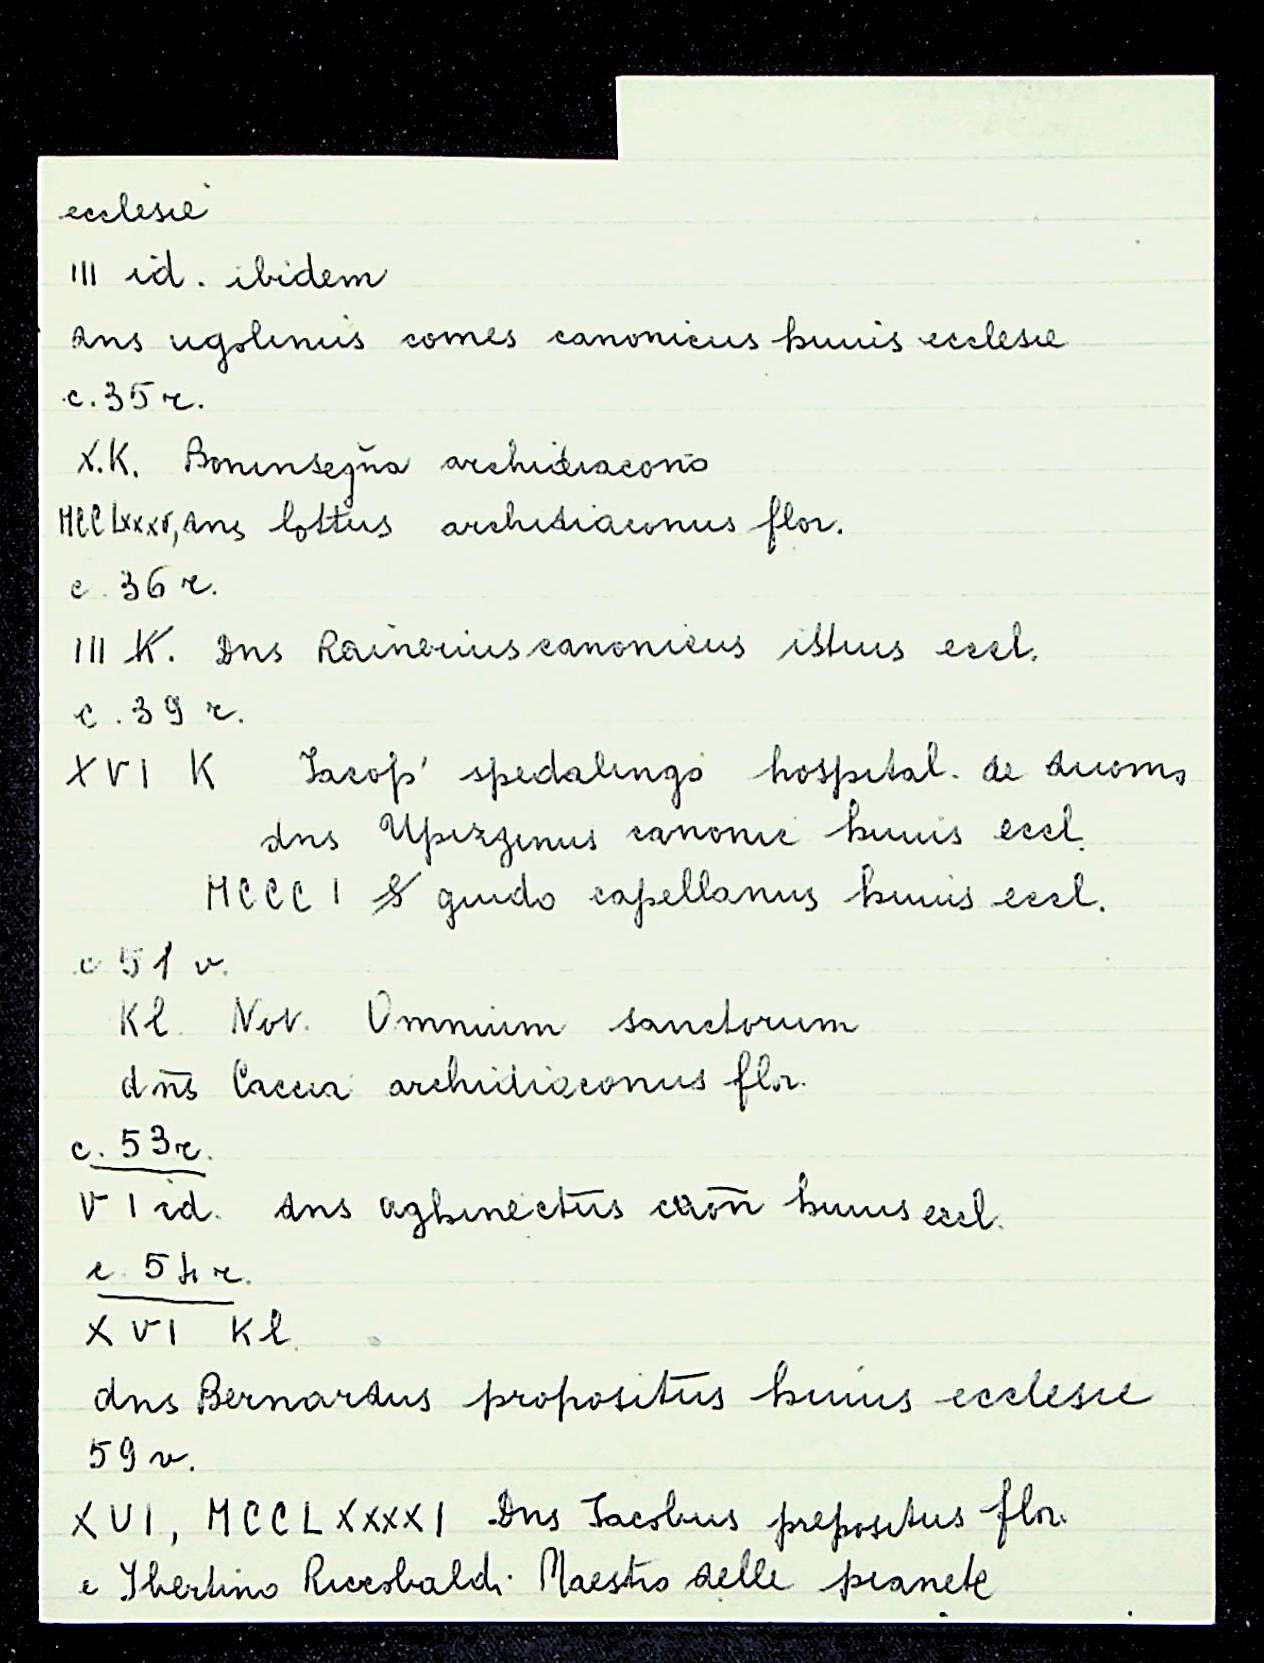 ecclesie
III id. ibidem
dns ugolinus comes canonicus huius ecclesie
c. 35 r.
X.K. Boninsegna archidiacono
MCCLxxxv, dns lottus archidiaconus flor.
c. 36 r.
III K. Dns Rainerius canonicus istius eccl.
c. 39 r.
XVI K Iacop' spedalingo hospital. de duomo
dns Upizzinus canonic huius eccl.
MCCCI S guido capellanus huius eccl.
c 51 v.
Kl. Nov. Omnium sanctorum
dns Caccia archidiaconus flor.
c. 53 r.
VI id. dns aghinectus canon huius eccl.
c. 54 r.
XVI Kl.
dns Bernardus propositus huius ecclesie
59 v.
XVI, MCCLXXXXI Dns Iacobus prepositus flor.
e Ybertino Riccobaldi. Maestro delle pianete